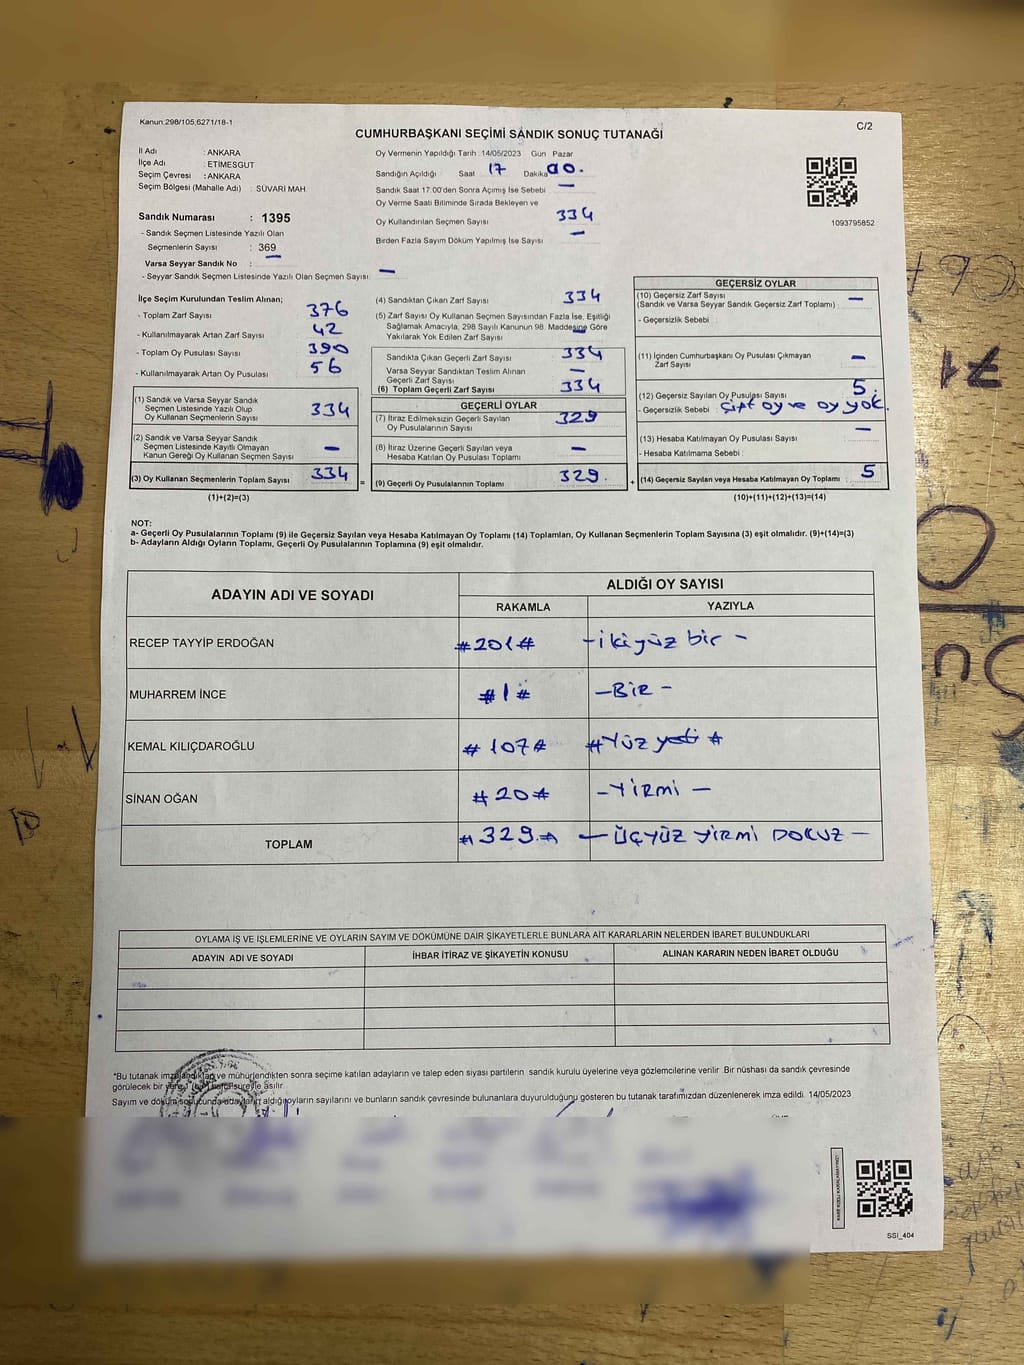 Kanun:298/105,6271/18-1
C/2
CUMHURBAŞKANI SEÇİMİ SANDIK SONUÇ TUTANAĞI
İl Adı : ANKARA
İlçe Adı : ETİMESGUT
Seçim Çevresi : ANKARA
Seçim Bölgesi (Mahalle Adı) : SÜVARİ MAH.
Sandık Numarası : 1395
- Sandık Seçmen Listesinde Yazılı Olan
Seçmenlerin Sayısı : 369
Varsa Seyyar Sandık No : —
- Seyyar Sandık Seçmen Listesinde Yazılı Olan Seçmen Sayısı: —
Oy Vermenin Yapıldığı Tarih : 14/05/2023 Gün Pazar
Sandığın Açıldığı Saat 17 Dakika 00.
Sandık Saat 17:00'den Sonra Açılmış İse Sebebi —
Oy Verme Saati Bitiminde Sırada Bekleyen ve
Oy Kullandırılan Seçmen Sayısı 334
Birden Fazla Sayım Döküm Yapılmış İse Sayısı —
1093795852
İlçe Seçim Kurulundan Teslim Alınan;
- Toplam Zarf Sayısı 376
- Kullanılmayarak Artan Zarf Sayısı 42
- Toplam Oy Pusulası Sayısı 390
- Kullanılmayarak Artan Oy Pusulası 56
(1) Sandık ve Varsa Seyyar Sandık
Seçmen Listesinde Yazılı Olup
Oy Kullanan Seçmenlerin Sayısı 334
(2) Sandık ve Varsa Seyyar Sandık
Seçmen Listesinde Kayıtlı Olmayan
Kanun Gereği Oy Kullanan Seçmen Sayısı —
(3) Oy Kullanan Seçmenlerin Toplam Sayısı 334 =
(1)+(2)=(3)
(4) Sandıktan Çıkan Zarf Sayısı 334
(5) Zarf Sayısı Oy Kullanan Seçmen Sayısından Fazla İse, Eşitliği
Sağlamak Amacıyla, 298 Sayılı Kanunun 98. Maddesine Göre
Yakılarak Yok Edilen Zarf Sayısı —
Sandıkta Çıkan Geçerli Zarf Sayısı 334
Varsa Seyyar Sandıktan Teslim Alınan
Geçerli Zarf Sayısı —
(6) Toplam Geçerli Zarf Sayısı 334
GEÇERLİ OYLAR
(7) İtiraz Edilmeksizin Geçerli Sayılan
Oy Pusulalarının Sayısı 329
(8) İtiraz Üzerine Geçerli Sayılan veya
Hesaba Katılan Oy Pusulası Toplamı —
(9) Geçerli Oy Pusulalarının Toplamı 329. +
GEÇERSİZ OYLAR
(10) Geçersiz Zarf Sayısı
(Sandık ve Varsa Seyyar Sandık Geçersiz Zarf Toplamı) —
- Geçersizlik Sebebi :
(11) İçinden Cumhurbaşkanı Oy Pusulası Çıkmayan
Zarf Sayısı —
(12) Geçersiz Sayılan Oy Pusulası Sayısı 5.
- Geçersizlik Sebebi : Çift oy ve oy yok.
(13) Hesaba Katılmayan Oy Pusulası Sayısı —
- Hesaba Katılmama Sebebi :
(14) Geçersiz Sayılan veya Hesaba Katılmayan Oy Toplamı 5
(10)+(11)+(12)+(13)=(14)
NOT:
a- Geçerli Oy Pusulalarının Toplamı (9) ile Geçersiz Sayılan veya Hesaba Katılmayan Oy Toplamı (14) Toplamları, Oy Kullanan Seçmenlerin Toplam Sayısına (3) eşit olmalıdır. (9)+(14)=(3)
b- Adayların Aldığı Oyların Toplamı, Geçerli Oy Pusulalarının Toplamına (9) eşit olmalıdır.
ADAYIN ADI VE SOYADI
ALDIĞI OY SAYISI
RAKAMLA YAZIYLA
RECEP TAYYİP ERDOĞAN #201# - iki yüz bir -
MUHARREM İNCE #1# - BİR -
KEMAL KILIÇDAROĞLU #107# #Yüz yedi#
SİNAN OĞAN #20# - YİRMİ -
TOPLAM #329# - ÜÇYÜZ YİRMİ DOKUZ -
OYLAMA İŞ VE İŞLEMLERİNE VE OYLARIN SAYIM VE DÖKÜMÜNE DAİR ŞİKAYETLERLE BUNLARA AİT KARARLARIN NELERDEN İBARET BULUNDUKLARI
ADAYIN ADI VE SOYADI İHBAR İTİRAZ VE ŞİKAYETİN KONUSU ALINAN KARARIN NEDEN İBARET OLDUĞU
*Bu tutanak imzalandıktan ve mühürlendikten sonra seçime katılan adayların ve talep eden siyasi partilerin sandık kurulu üyelerine veya gözlemcilerine verilir. Bir nüshası da sandık çevresinde
görülecek bir yere süreyle asılır.
Sayım ve döküm sonucunda adayların aldığı oyların sayılarını ve bunların sandık çevresinde bulunanlara duyurulduğunu gösteren bu tutanak tarafımızdan düzenlenerek imza edildi. 14/05/2023
SSI_404
71